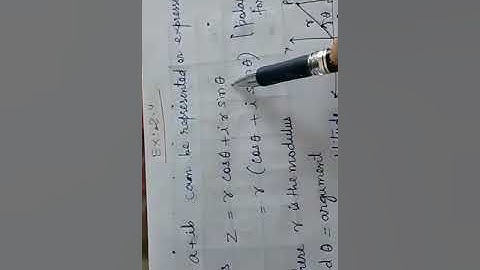 Ex: 2.4
a+ib can be represented or express
Z = r cosθ + i r sinθ
= r (cosθ + i sinθ) [Polar
for
where r is the modulus
d θ = argument
r
θ